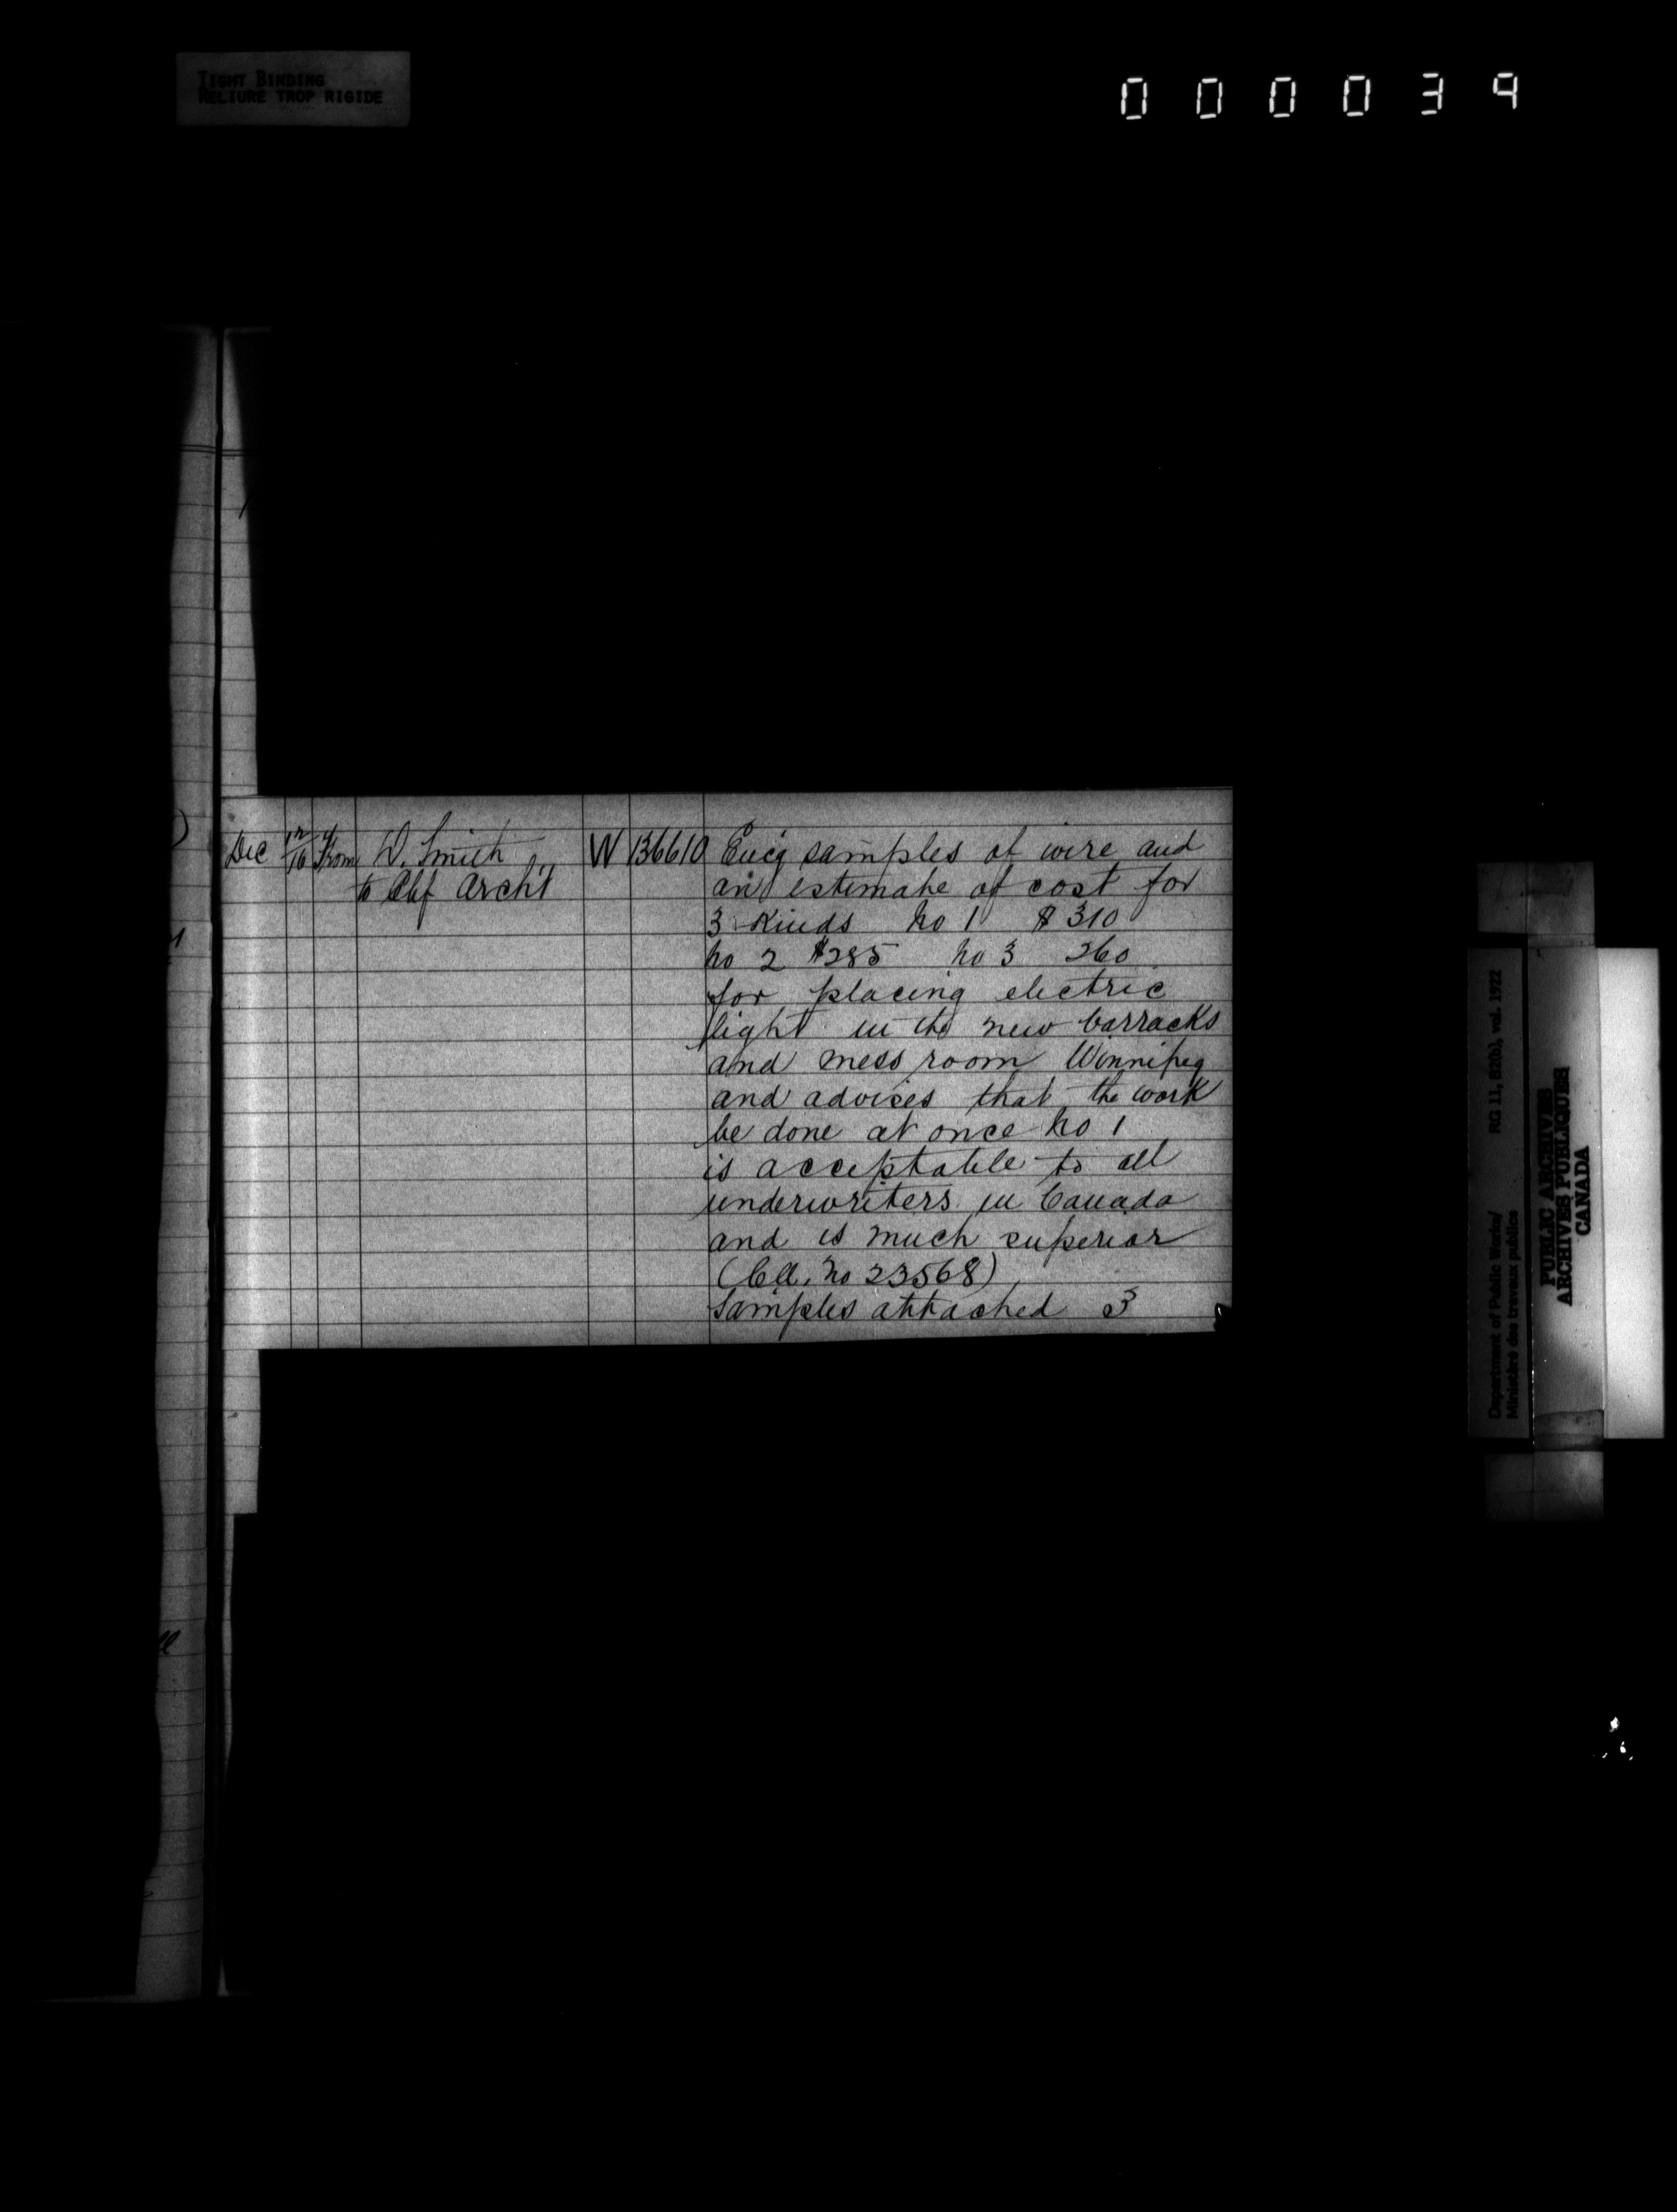 TIGHT BINDING
RELIURE TROP RIGIDE
000039
Dec 12/16 From D. Smith W 136610 Encg samples of wire and
to Chf Archt an estimate of cost for
3 Kinds No 1 $310
No 2 $285 No 3 260
for placing electric
light in the new barracks
and mess room Winnipeg
and advises that the work
be done at once No 1
is acceptable to all
underwriters in Canada
and is much superior
(Ca. No 23568)
Samples attached 3
Department of Public Works/ RG 11, B2(b), vol. 1922
Ministère des travaux publics
PUBLIC ARCHIVES
ARCHIVES PUBLIQUES
CANADA